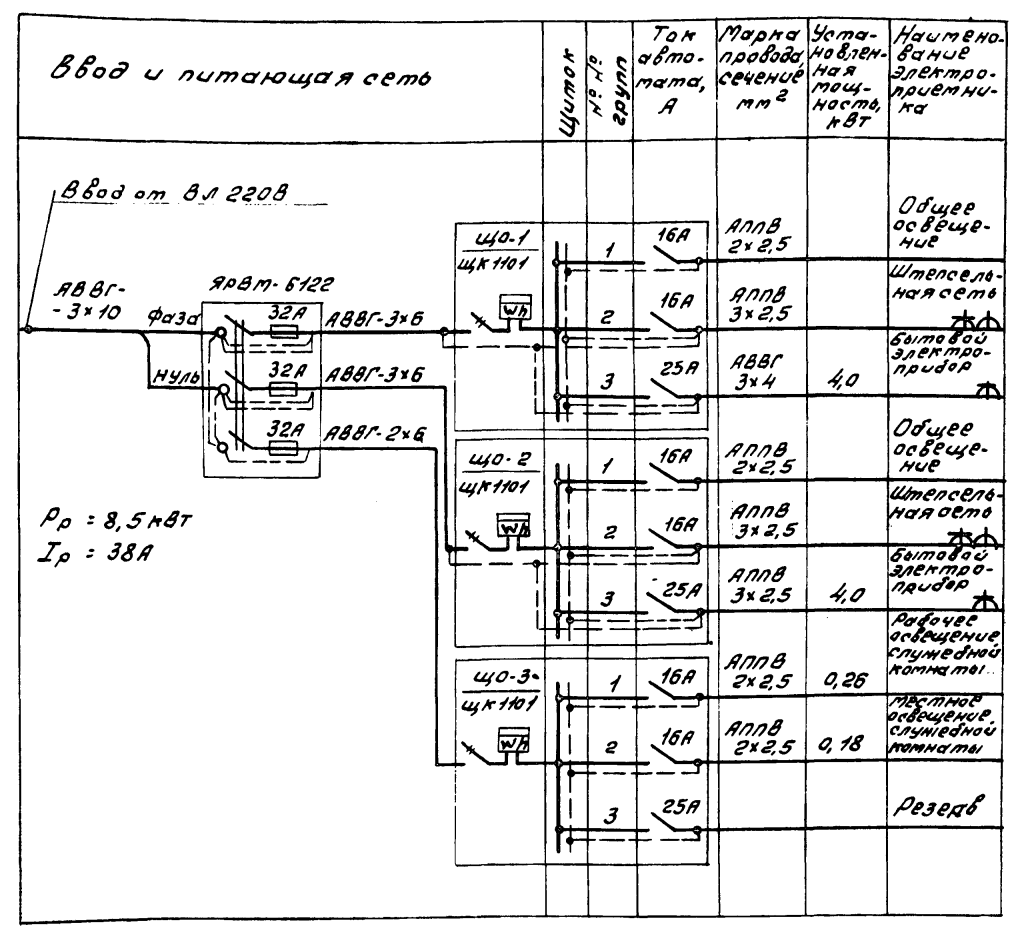 Ввод и питающая сеть
Щиток
№№
групп
Ток
авто-
мата,
А
Марка
провода,
сечение
мм2
Уста-
новлен-
ная
мощ-
ность,
кВт
Наимено-
вание
электро-
приемни-
ка
Ввод от ВЛ 220В
АВВГ-
-3×10
фаза
нуль
ЯРВМ-6122
32А
АВВГ-3×6
32А
АВВГ-3×6
32А
АВВГ-2×6
Рр = 8,5 кВт
Iр = 38А
ЩО-1
ЩК1101
Wh
1
16А
АППВ
2×2,5
Общее
освеще-
ние
2
16А
АППВ
3×2,5
Штепсель-
ная сеть
3
25А
АВВГ
3×4
4,0
Бытовой
электро-
прибор
ЩО-2
ЩК1101
Wh
1
16А
АППВ
2×2,5
Общее
освеще-
ние
2
16А
АППВ
3×2,5
Штепсель-
ная сеть
3
25А
АППВ
3×2,5
4,0
Бытовой
электро-
прибор
ЩО-3
ЩК1101
Wh
1
16А
АППВ
2×2,5
0,26
Рабочее
освещение
служебной
комнаты
2
16А
АППВ
2×2,5
0,18
Местное
освещение
служебной
комнаты
3
25А
Резерв